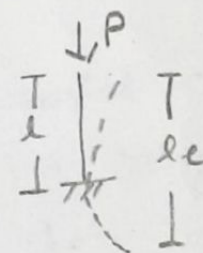 P
l
le